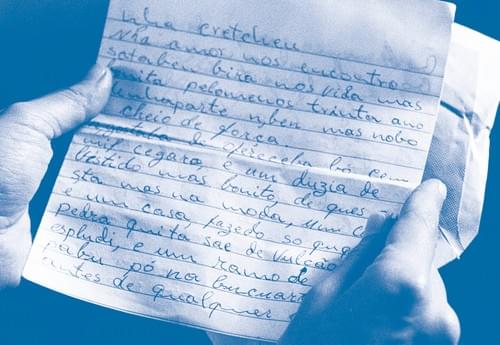 Nha cretcheu
Nha amor nos encontro
bira nos vida mas
pelomenos trinta ano
naparte nben mas nobo
cheio de força.
di ofereceba bo cem
mil cigaro, e um duzia de
Vestido mas bonite, de ques
sta mas na moda, um
e um casa, fazedo so
pedra quita sae de vulcão
espludi, e um ramo de
pabu pó na
antes de qualquer